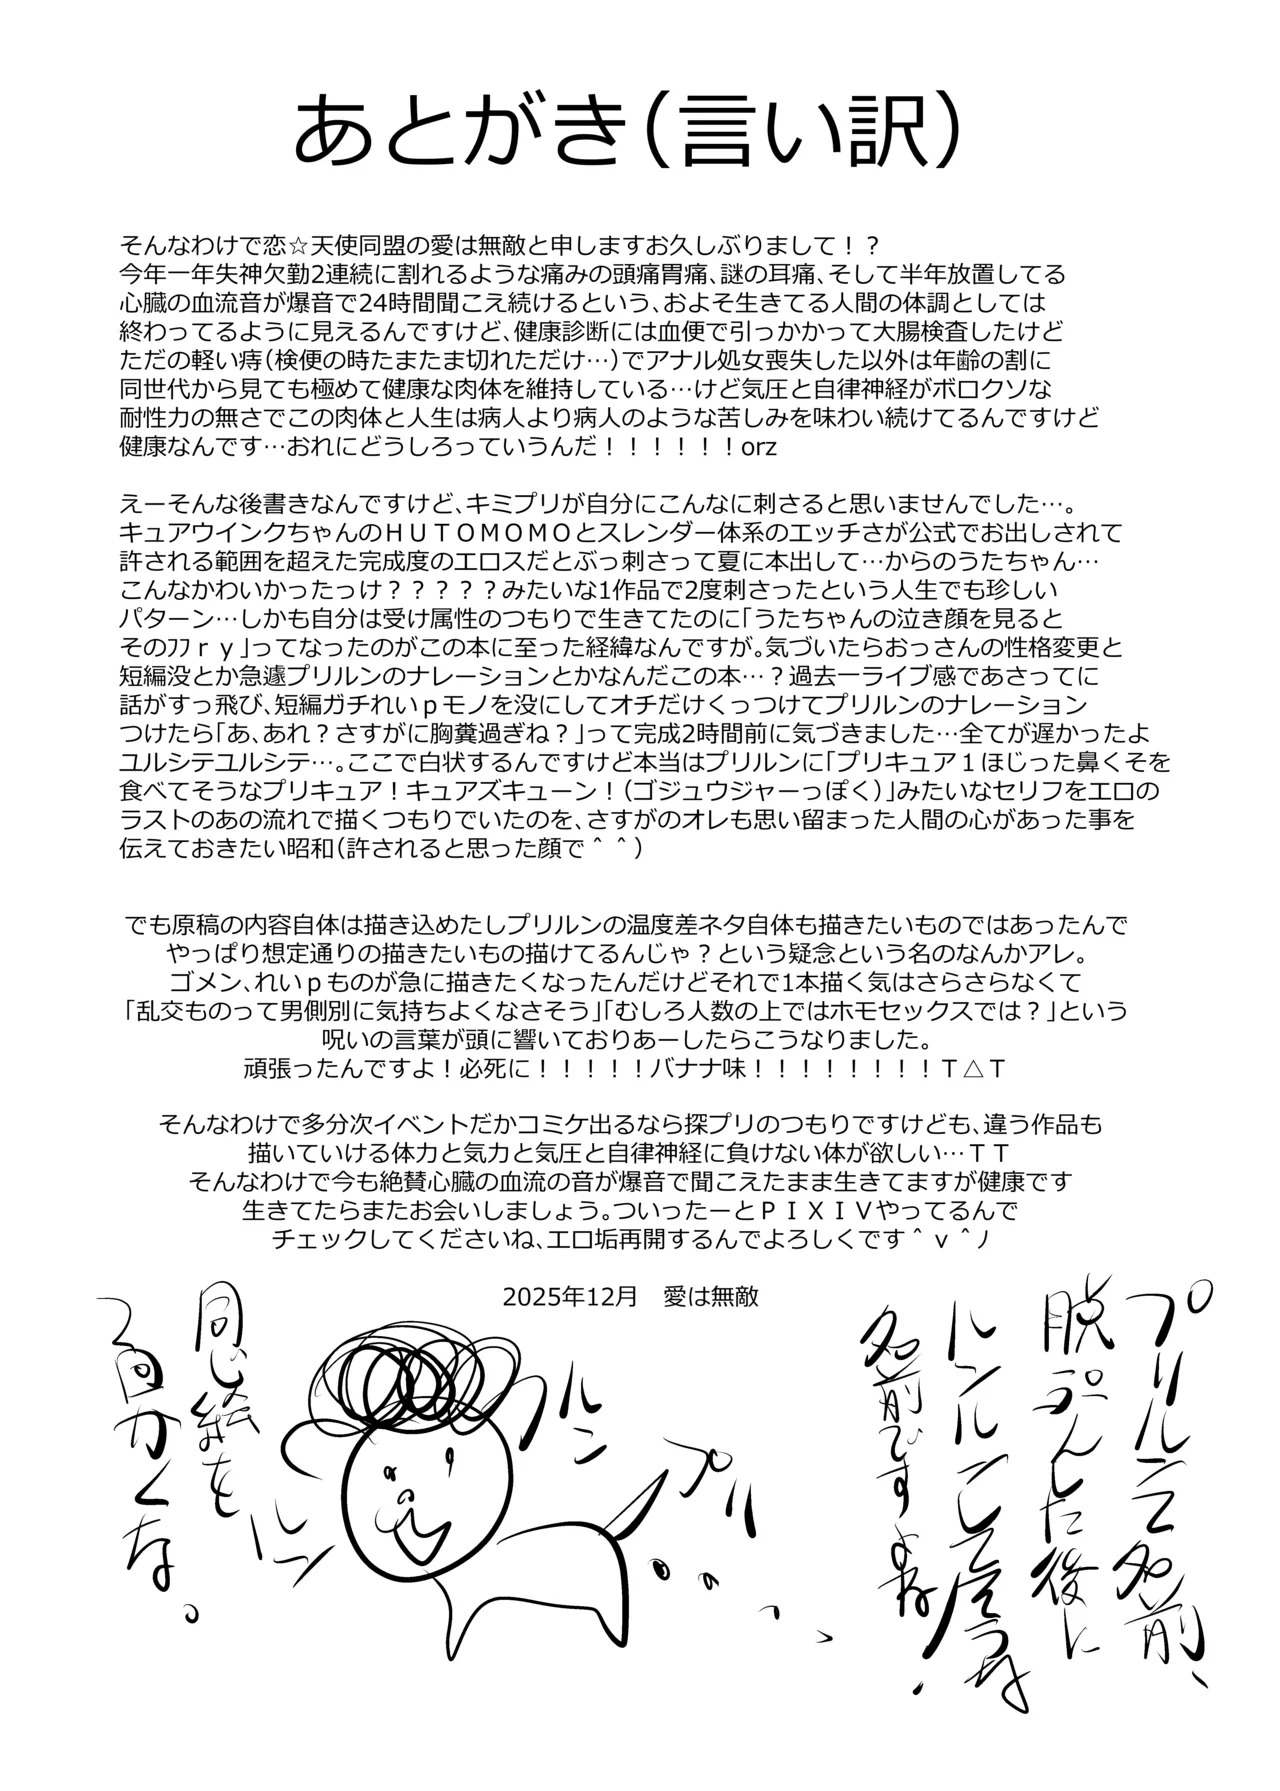 あとがき(言い訳)
そんなわけで恋☆天使同盟の愛は無敵と申しますお久しぶりまして！？
今年一年失神欠勤2連続に割れるような痛みの頭痛胃痛、謎の耳痛、そして半年放置してる
心臓の血流音が爆音で24時間聞こえ続けるという、およそ生きてる人間の体調としては
終わってるように見えるんですけど、健康診断には血便で引っかかって大腸検査したけど
ただの軽い痔(検便の時たまたま切れただけ…)でアナル処女喪失した以外は年齢の割に
同世代から見ても極めて健康な肉体を維持している…けど気圧と自律神経がボロクソな
耐性力の無さでこの肉体と人生は病人より病人のような苦しみを味わい続けてるんですけど
健康なんです…おれにどうしろっていうんだ！！！！！！orz
えーそんな後書きなんですけど、キミプリが自分にこんなに刺さると思いませんでした…。
キュアウインクちゃんのＨＵＴＯＭＯＭＯとスレンダー体系のエッチさが公式でお出しされて
許される範囲を超えた完成度のエロスだとぶっ刺さって夏に本出して…からのうたちゃん…
こんなかわいかったっけ？？？？？みたいな1作品で2度刺さったという人生でも珍しい
パターン…しかも自分は受け属性のつもりで生きてたのに｢うたちゃんの泣き顔を見ると
そのﾌﾌｒｙ｣ってなったのがこの本に至った経緯なんですが。気づいたらおっさんの性格変更と
短編没とか急遽プリルンのナレーションとかなんだこの本…？過去一ライブ感であさってに
話がすっ飛び、短編ガチれいｐモノを没にしてオチだけくっつけてプリルンのナレーション
つけたら｢あ、あれ？さすがに胸糞過ぎね？｣って完成2時間前に気づきました…全てが遅かったよ
ユルシテユルシテ…。ここで白状するんですけど本当はプリルンに｢プリキュア１ほじった鼻くそを
食べてそうなプリキュア！キュアズキューン！(ゴジュウジャーっぽく)｣みたいなセリフをエロの
ラストのあの流れで描くつもりでいたのを、さすがのオレも思い留まった人間の心があった事を
伝えておきたい昭和(許されると思った顔で＾＾)
でも原稿の内容自体は描き込めたしプリルンの温度差ネタ自体も描きたいものではあったんで
やっぱり想定通りの描きたいもの描けてるんじゃ？という疑念という名のなんかアレ。
ゴメン、れいｐものが急に描きたくなったんだけどそれで1本描く気はさらさらなくて
｢乱交ものって男側別に気持ちよくなさそう｣｢むしろ人数の上ではホモセックスでは？｣という
呪いの言葉が頭に響いておりあーしたらこうなりました。
頑張ったんですよ！必死に！！！！！バナナ味！！！！！！！！Ｔ△Ｔ
そんなわけで多分次イベントだかコミケ出るなら探プリのつもりですけども、違う作品も
描いていける体力と気力と気圧と自律神経に負けない体が欲しい…ＴＴ
そんなわけで今も絶賛心臓の血流の音が爆音で聞こえたまま生きてますが健康です
生きてたらまたお会いしましょう。ついったーとＰＩＸＩＶやってるんで
チェックしてくださいね、エロ垢再開するんでよろしくです＾ｖ＾ﾉ
2025年12月　愛は無敵
プリルンて名前、
脱ぷんした後に
ルンルンしてそうな
名前ですよね！
プリ
ルン
ルン
同じ絵を
2回かくな。